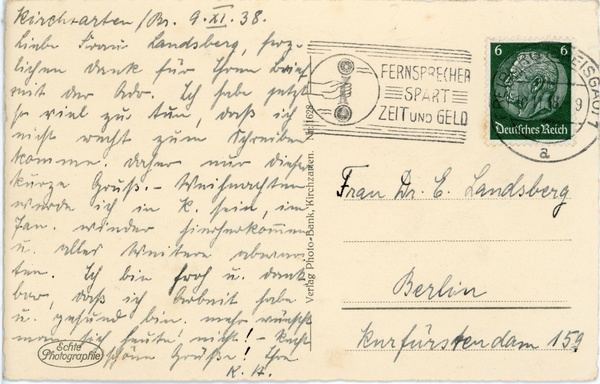 Kirchzarten /Br. 9.XI.38.
Liebe Frau Landsberg, herz-
lichen Dank für Ihren Brief
mit der Adr. Ich habe jetzt
so viel zu tun, daß ich
nicht recht zum Schreiben
komme. Daher nur dieser
kurze Gruß. – Weihnachten
werde ich in K. sein, im
Jan. wieder hierherkommen
u. alles Weitere abwar-
ten. Ich bin froh u. dank-
bar, daß ich Arbeit habe
u. gesund bin. mehr wünscht
man sich heute nicht! –
schöne Grüße! Ihre
K. H.
Echte
Photographie
Verlag Photo-Bank, Kirchzarten. Nr. 1628
FERNSPRECHER
SPART
ZEIT UND GELD
6 6
Deutsches Reich
BREISGAU 1
a
Frau Dr. E. Landsberg
Berlin
Kurfürstendam 159